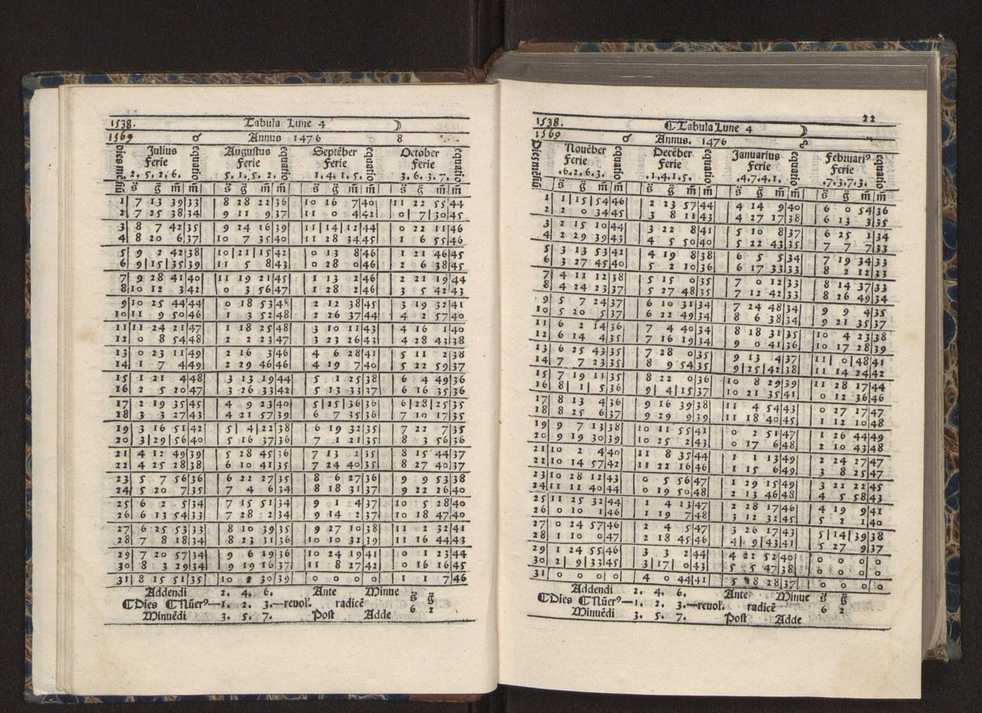 1538. Tabula Lune 4 ☽
1569 ♂ Annus 1476 8
Julius Augustus Septẽber October
Ferie Ferie Ferie Ferie
.2.5.2.6. 5.1.5.2. 1.4.1.5. 3.6.3.7.
g̃ g̃ m̃ m̃ g̃ g̃ m̃ m̃ g̃ g̃ m̃ m̃ g̃ g̃ m̃ m̃
1 7 13 39 33 8 28 22 36 10 16 7 40 11 22 55 44
2 7 25 38 34 9 11 9 37 11 0 4 42 0 7 30 45
3 8 7 42 35 9 24 16 39 11 14 12 44 0 22 11 46
4 8 20 6 37 10 7 35 40 11 28 34 45 1 6 55 46
5 9 2 42 38 10 21 15 42 0 13 8 46 1 21 46 45
6 9 15 35 39 11 5 8 43 0 28 0 46 2 6 38 45
7 9 28 41 40 11 19 21 45 1 13 2 46 2 21 19 44
8 10 12 3 42 0 3 56 47 1 28 2 46 3 5 42 43
9 10 25 44 44 0 18 53 48 2 12 38 45 3 19 32 41
10 11 9 50 46 1 3 52 48 2 26 37 44 4 2 57 40
11 11 24 21 47 1 18 25 48 3 10 11 43 4 16 1 40
12 0 8 54 48 2 2 23 47 3 23 26 42 4 28 41 38
13 0 23 11 49 2 16 3 46 4 6 28 41 5 11 2 38
14 1 7 4 49 2 29 46 46 4 19 7 40 5 22 59 37
15 1 21 4 48 3 13 19 44 5 1 25 38 6 4 49 36
16 2 5 20 47 3 26 33 42 5 13 33 37 6 16 35 36
17 2 19 35 45 4 9 23 40 5 25 36 36 6 28 25 35
18 3 3 27 43 4 21 57 39 6 7 35 36 7 10 17 35
19 3 16 51 42 5 4 22 38 6 19 32 35 7 22 7 35
20 3 29 56 40 5 16 37 36 7 1 21 35 8 3 56 36
21 4 12 49 39 5 28 45 36 7 13 2 35 8 15 44 37
22 4 25 28 38 6 10 41 35 7 24 40 35 8 27 40 37
23 5 7 56 36 6 22 27 35 8 6 27 36 9 9 53 38
24 5 20 7 35 7 4 6 34 8 18 31 37 9 22 26 40
25 6 2 5 34 7 15 51 34 9 1 4 37 10 5 28 40
26 6 13 54 33 7 28 2 34 9 14 2 37 10 18 47 40
27 6 25 53 33 8 10 39 35 9 27 10 38 11 2 32 41
28 7 8 18 34 8 23 31 36 10 10 32 39 11 16 44 43
29 7 20 57 34 9 6 19 36 10 24 19 41 0 1 23 44
30 8 3 29 34 9 19 16 37 11 8 27 42 0 16 16 45
31 8 15 51 35 10 2 30 39 0 0 0 0 1 1 7 46
Addendi 2. 4. 6. Ante Minue g̃ g̃
Dies Nũerꝰ—1. 2. 3.—reuol. radicẽ 6 2
Minuẽdi 3. 5. 7. Post Adde
22
1538. Tabula Lune 4 ☽
1569 ♂ Annus. 1476
Nouẽber Decẽber Januarius Februariꝰ
Ferie Ferie Ferie Ferie
.6.2.6.3. .1.4.1.5. .4.7.4.1. .7.3.7.3.
g̃ g̃ m̃ m̃ g̃ g̃ m̃ m̃ g̃ g̃ m̃ m̃ g̃ g̃ m̃ m̃
1 1 15 54 46 2 23 57 44 4 14 9 40 6 0 54 36
2 2 0 34 45 3 8 11 43 4 27 17 38 6 13 3 35
3 2 15 10 44 3 22 8 41 5 10 8 37 6 25 3 34
4 2 29 39 43 4 5 50 40 5 22 43 35 7 7 7 33
5 3 13 53 42 4 19 8 38 6 5 5 34 7 19 34 33
6 3 27 45 40 5 2 10 36 6 17 33 33 8 2 12 33
7 4 11 12 38 5 15 0 35 7 0 12 33 8 14 37 33
8 4 24 23 37 5 27 48 35 7 12 42 33 8 26 49 34
9 5 7 24 37 6 10 31 34 7 24 48 34 9 9 4 35
10 5 20 5 37 6 22 49 34 8 6 38 34 9 21 35 37
11 6 2 14 36 7 4 40 34 8 18 31 35 10 4 23 38
12 6 14 4 35 7 16 19 34 9 0 41 36 10 17 28 39
13 6 25 43 35 7 28 0 35 9 13 4 37 11 0 48 41
14 7 7 23 35 8 9 54 35 9 25 42 38 11 14 24 42
15 7 19 11 35 8 22 0 36 10 8 29 39 11 28 17 44
16 8 1 5 36 9 4 15 37 10 21 35 41 0 12 36 46
17 8 13 4 36 9 16 39 38 11 4 54 43 0 27 17 47
18 8 25 6 37 9 29 9 39 11 18 40 45 1 12 10 48
19 9 7 13 38 10 11 55 41 0 2 51 47 1 26 44 49
20 9 19 30 39 10 25 2 43 0 17 6 48 2 10 43 48
21 10 2 4 40 11 8 35 44 1 1 13 49 2 24 17 47
22 10 14 57 42 11 22 16 46 1 15 6 49 3 8 25 47
23 10 28 12 43 0 5 56 47 1 29 15 49 3 21 22 45
24 11 11 40 44 0 19 50 48 2 13 46 48 4 5 58 43
25 11 25 32 44 1 4 13 47 2 28 17 46 4 19 9 41
26 0 10 1 46 1 19 7 48 3 12 32 45 5 2 1 40
27 0 24 57 46 2 4 5 47 3 26 17 43 5 14 39 38
28 1 10 0 47 2 18 45 46 4 9 43 41 5 27 9 37
29 1 24 55 46 3 3 2 44 4 22 52 40 0 0 0 0
30 2 9 33 45 3 17 0 43 5 5 47 38 0 0 0 0
31 0 0 0 0 4 0 44 41 5 8 28 37 0 0 0 0
Addendi 2. 4. 6. Ante Minue g̃ g̃
Dies Nũerꝰ—1. 2. 3.—reuol. radicẽ 6 2
Minuẽdi 3. 5. 7. Post Adde